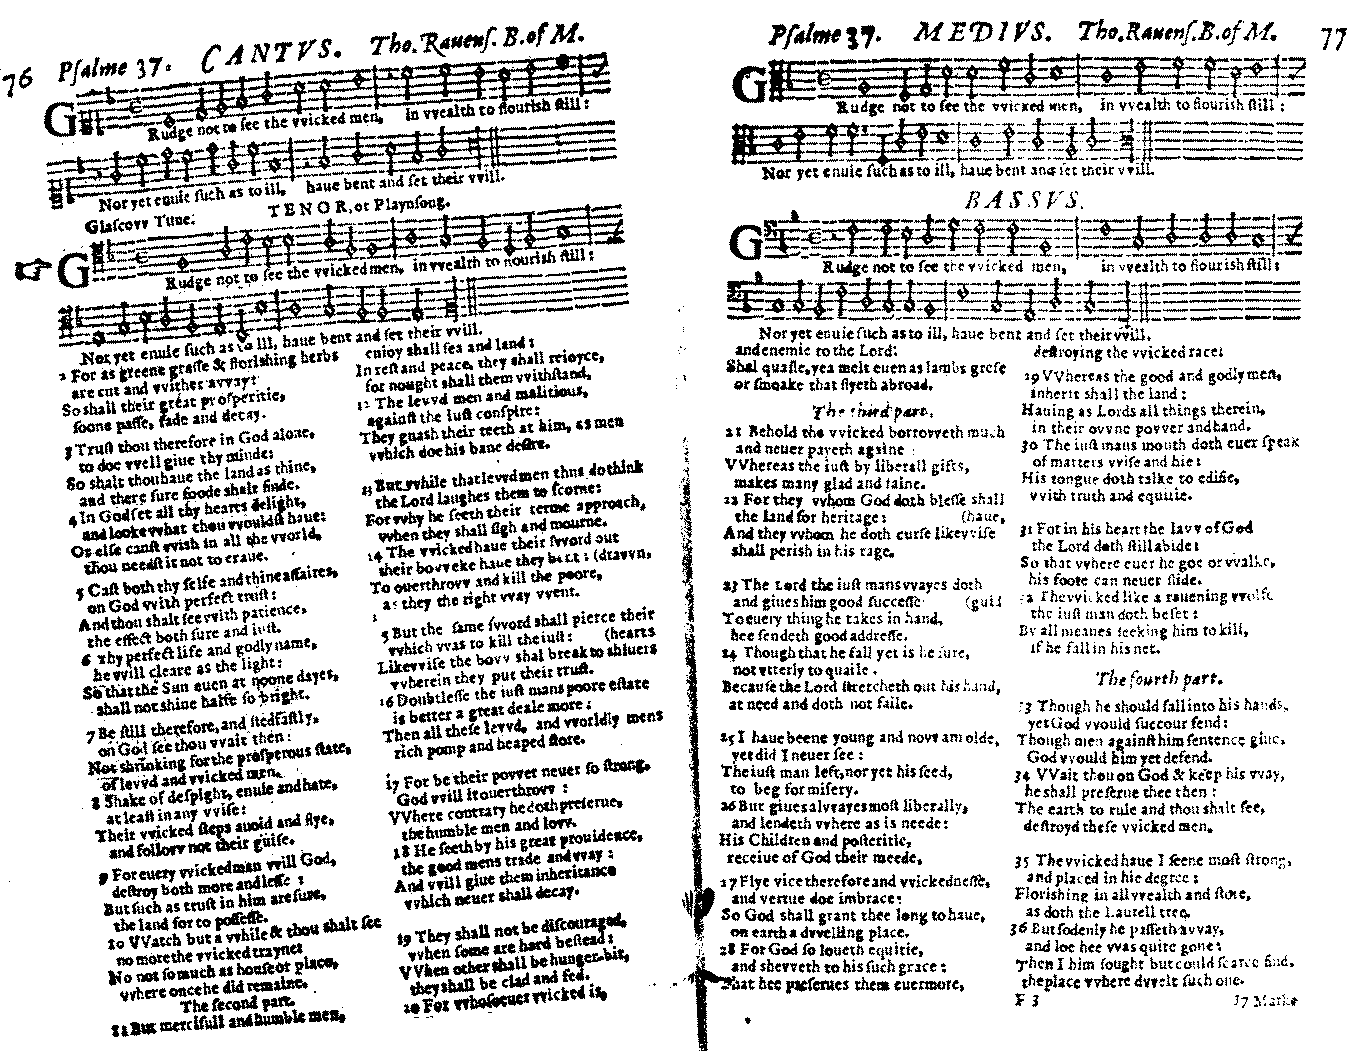 76 Psalme 37. CANTVS. Tho. Rauens. B. of M.
GRudge not to see the vvicked men, in vvealth to flourish still:
Nor yet enuie such as to ill, haue bent and set their vvill.
Glascovv Tune: TENOR, or Playnsong.
☞ GRudge not to see the vvicked men, in vvealth to nourish still:
Nor yet enuie such as to ill, haue bent and set their vvill.
2 For as greene grasse & florishing herbs
are cut and vvither avvay:
So shall their great prosperitie,
soone passe, fade and decay.
3 Trust thou therefore in God alone,
to doe vvell giue thy minde:
So shalt thou haue the land as thine,
and there sure foode shalt finde.
4 In God set all thy hearts delight,
and looke what thou vvouldst haue:
Or else canst vvish in all the vvorld,
thou needst it not to craue.
5 Cast both thy selfe and thine affaires,
on God vvith perfect trust:
And thou shalt see vvith patience,
the effect both sure and iust.
6 Thy perfect life and godly name,
he vvill cleare as the light:
So that the Sun euen at noone dayes,
shall not shine halfe so bright.
7 Be still therefore, and stedfastly,
on God see thou vvait then:
Not shrinking for the prosperous state,
of levvd and vvicked men.
8 Shake of despight, enuie and hate,
at least in any vvise:
Their vvicked steps auoid and flye,
and follovv not their guise.
9 For euery vvicked man vvill God,
destroy both more and lesse:
But such as trust in him are sure,
the land for to possesse.
10 VVatch but a vvhile & thou shalt see
no more the vvicked traynes
No not so much as house or place,
vvhere once he did remaine.
The second part.
11 But mercifull and humble men,
enioy shall sea and land:
In rest and peace, they shall reioyce,
for nought shall them vvithstand,
12 The levvd men and malitious,
against the iust conspire:
They gnash their teeth at him, as men
vvhich doe his bane desire.
13 But vvhile that levvd men thus do think
the Lord laughes them to scorne:
For vvhy he seeth their terme approach,
vvhen they shall sigh and mourne.
14 The vvicked haue their svvord out
their bovv eke haue they bent: (dravvn,
To ouerthrovv and kill the poore,
as they the right vvay vvent.
5 But the same svvord shall pierce their
vvhich vvas to kill the iust: (hearts
Likevvise the bovv shal break to shiuers
vvherein they put their trust.
16 Doubtlesse the iust mans poore estate
is better a great deale more:
Then all these levvd, and vvorldly mens
rich pomp and heaped store.
17 For be their povver neuer so strong,
God vvill it ouerthrovv:
VVhere contrary he doth preserue,
the humble men and lovv.
18 He seeth by his great prouidence,
the good mens trade and vvay:
And vvill giue them inheritance
vvhich neuer shall decay.
19 They shall not be discouraged,
vvhen some are hard bestead:
VVhen other shall be hunger-bit,
they shall be clad and fed.
20 For vvhosoeuer vvicked is,
Psalme 37. MEDIVS. Tho. Rauens. B. of M. 77
GRudge not to see the vvicked men, in vvealth to flourish still:
Nor yet enuie such as to ill, haue bent and set their vvill.
BASSVS.
GRudge not to see the vvicked men, in vvealth to flourish still:
Nor yet enuie such as to ill, haue bent and set their vvill.
and enemie to the Lord:
Shal quaile, yea melt euen as lambs grese
or smoake that flyeth abroad.
The third part.
21 Behold the vvicked borrovveth much
and neuer payeth againe
VVhereas the iust by liberall gifts,
makes many glad and faine.
22 For they vvhom God doth blesse shall
the land for heritage: (haue,
And they vvhom he doth curse likevvise
shall perish in his rage.
23 The Lord the iust mans vvayes doth
and giues him good successe (guid
To euery thing he takes in hand,
hee sendeth good addresse.
24 Though that he fall yet is he sure,
not vtterly to quaile.
Because the Lord stretcheth out his hand,
at need and doth not faile.
25 I haue beene young and novv am olde,
yet did I neuer see:
The iust man left, nor yet his seed,
to beg for misery.
26 But giues alvvayes most liberally,
and lendeth vvhere as is neede:
His Children and posteritie,
receiue of God their meede,
27 Flye vice therefore and vvickednesse,
and vertue doe imbrace:
So God shall grant thee long to haue,
on earth a dvvelling place.
28 For God so loueth equitie,
and shevveth to his such grace:
That hee preserues them euermore,
destroying the vvicked race:
29 VVhereas the good and godly men,
inherit shall the land:
Hauing as Lords all things therein,
in their ovvne povver and hand.
30 The iust mans mouth doth euer speak
of matters vvise and hie:
His tongue doth talke to edifie,
vvith truth and equitie.
31 For in his heart the lavv of God
the Lord doth still abide:
So that vvhere euer he goe or vvalke,
his foote can neuer slide.
32 The vvicked like a rauening vvolfe
the iust man doth beset:
By all meanes seeking him to kill,
if he fall in his net.
The fourth part.
33 Though he should fall into his hands,
yet God vvould succour send:
Though men against him sentence giue,
God vvould him yet defend.
34 VVait thou on God & keep his vvay,
he shall preserue thee then:
The earth to rule and thou shalt see,
destroyd these vvicked men.
35 The vvicked haue I seene most strong,
and placed in hie degree:
Florishing in all vvealth and store,
as doth the Laurell tree.
36 But sodenly he passeth avvay,
and loe hee vvas quite gone:
Then I him sought but could scarce find,
the place vvhere dvvelt such one.
F 3 37 Marke